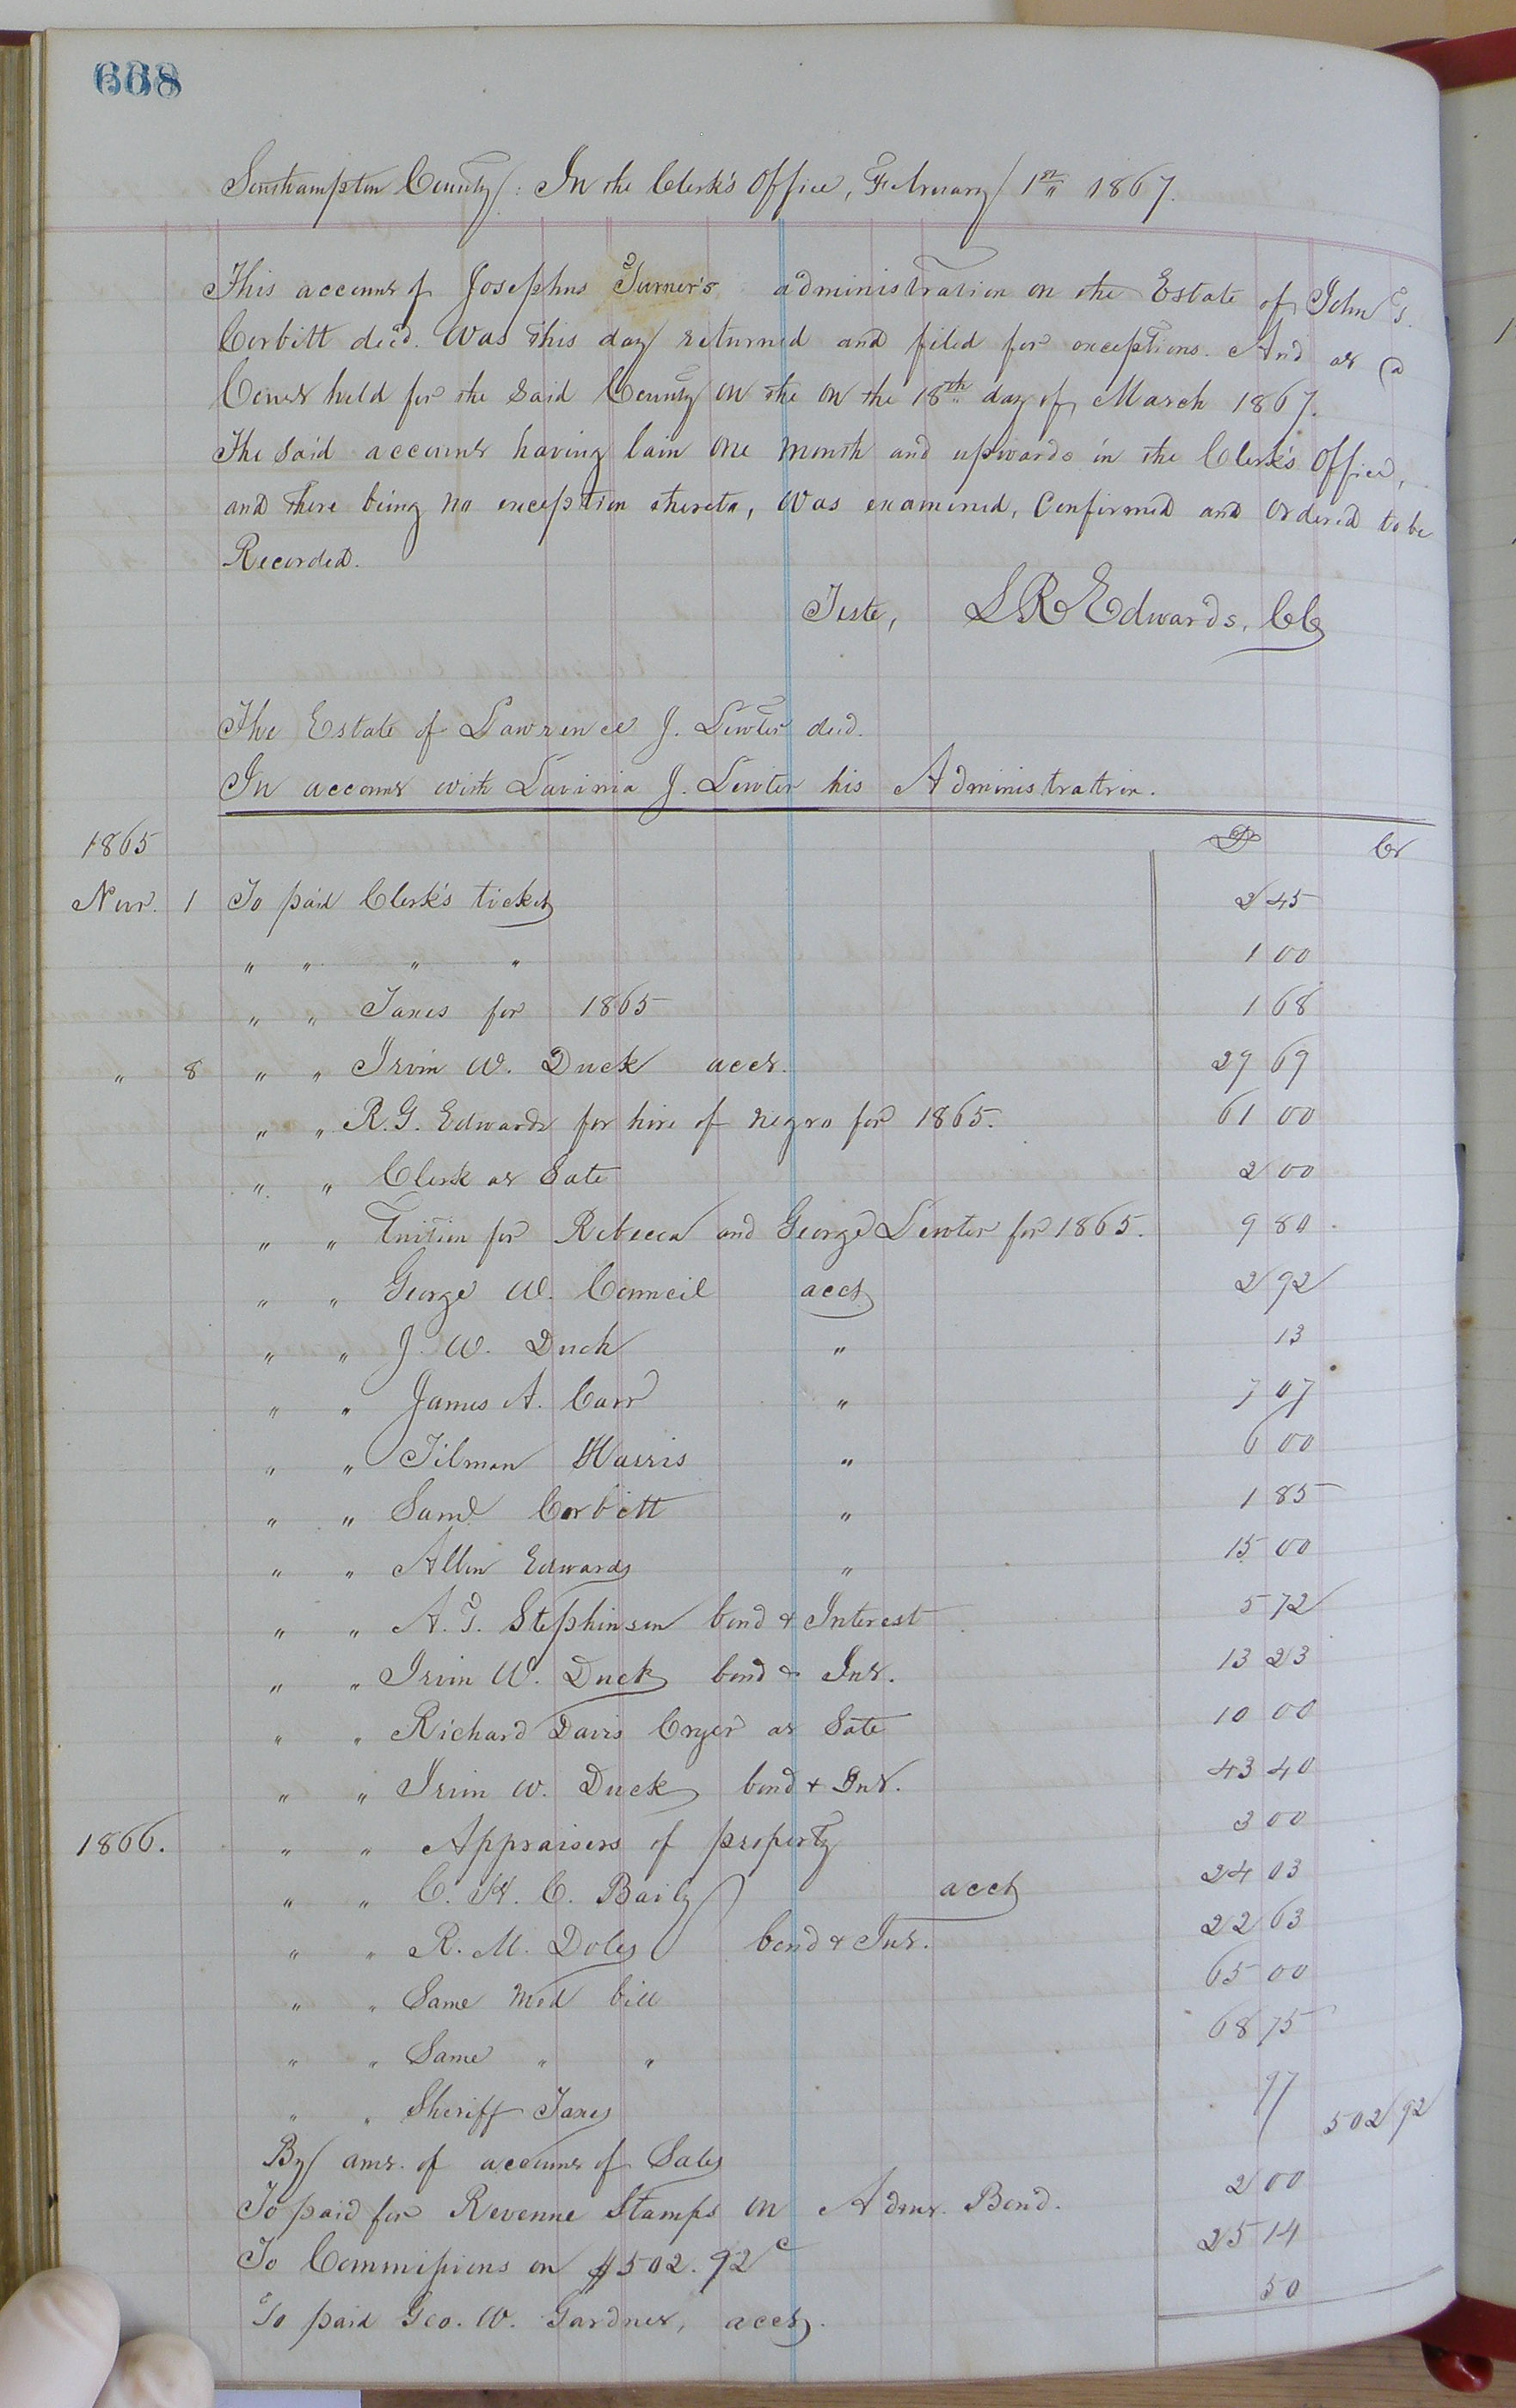 668
Southampton County: In the Clerk's Office, February 1st 1867.
This account of Josephus Turner's administration on the Estate of John T.
Corbitt decd. Was this day returned and filed for exceptions. And at a
Court held for the said County on the on the 18th day of March 1867.
The said account having lain one month and upwards in the Clerk's Office,
and there being no exception thereto, was examined, Confirmed and ordered to be
Recorded.
Teste, L R Edwards, CC
The Estate of Lawrence J. Lewter decd.
In account with Lavinia J. Lewter his Administratrix.
1865 D Cr
Nov. 1 To paid Clerk's ticket 2 45
" " " " 1 00
" " Taxes for 1865 1 68
" 8 " " Irvin W. Duck acct. 29 69
" " R. G. Edwards for hire of negro for 1865. 61 00
" " Clerk at Sale 2 00
" " Tuition for Rebecca and George Lewter for 1865. 9 80
" " George W. Council acct 2 92
" " J. W. Duck " 13
" " James A. Carr " 7 07
" " Tilman Harris " 6 00
" " Saml Corbitt " 1 85
" " Allen Edwards " 15 00
" " A. T. Stephenson bond & Interest 5 72
" " Irvin W. Duck bond & Int. 13 23
" " Richard Davis Cryer at Sale 10 00
" " Irvin W. Duck bond & Int. 43 40
1866. " " Appraisers of property 3 00
" " C. H. C. Baily acct 24 03
" " R. M. Doles bond & Int. 22 63
" " Same Med bill 65 00
" " Same " " 68 75
" " Sheriff Taxes 97
By amt. of account of Sales 502 92
To paid for Revenue Stamps on Admr. Bond. 2 00
To Commissions on $502.92c 25 14
To paid Geo. W. Gardner, acct. 50